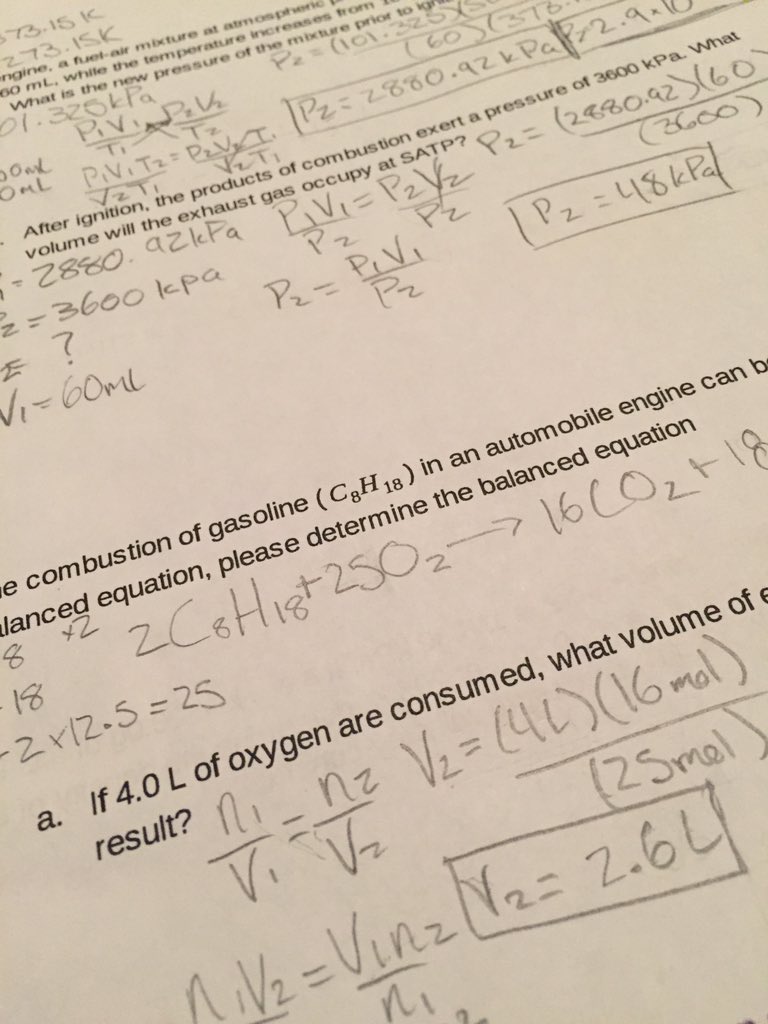 373.15K
273.15K
engine, a fuel-air mixture at atmospheric
60 mL, while the temperature increases from
What is the new pressure of the mixture prior to
P₂=(101.325)
(60)(373.
P₂=2880.92kPa
P₂=2.9×10
01.325kPa
P₁V₁ P₂V₂
T₁ T₂
P₁V₁T₂=P₂V₂T₁
V₂T₁ V₂T₁
After ignition, the products of combustion exert a pressure of 3600 kPa. What
volume will the exhaust gas occupy at SATP?
P₂=(2880.92)(60
(3600)
P₂=48kPa
=2880.92kPa
P₁V₁=P₂V₂
P₂ P₂
2=3600kpa
P₂=P₁V₁
P₂
= ?
V₁=60mL
e combustion of gasoline (C₈H₁₈) in an automobile engine can be
lanced equation, please determine the balanced equation
8 ×2 2C₈H₁₈+25O₂→16CO₂+18
18
2×12.5=25
a. If 4.0 L of oxygen are consumed, what volume of e
result?
n₁=n₂
V₁ V₂
V₂=(4L)(16mol)
(25mol)
V₂=2.6L
n₁V₂=V₁n₂
n₁